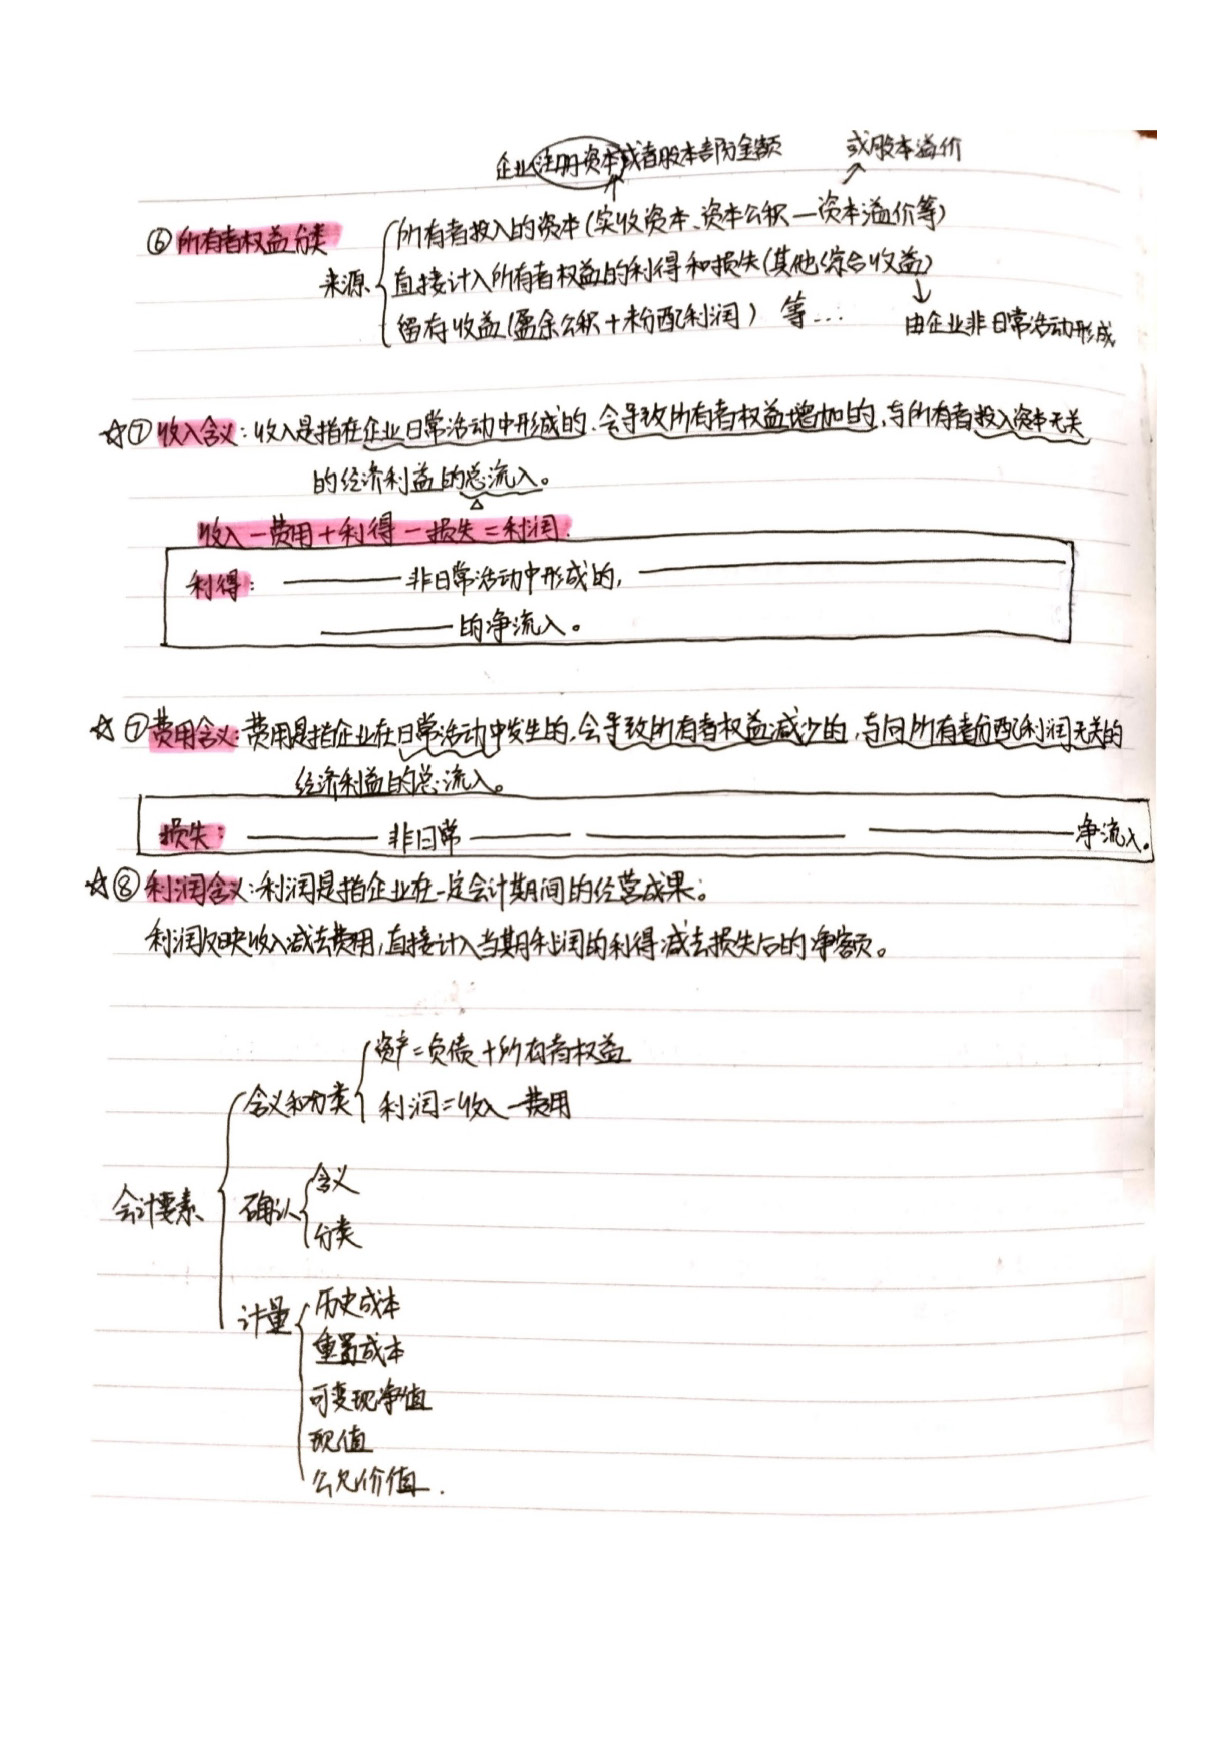 企业注册资本或者股本部分金额 或股本溢价
⑥所有者权益分类
来源
所有者投入的资本(实收资本、资本公积—资本溢价等)
直接计入所有者权益的利得和损失(其他综合收益)
留存收益(盈余公积+未分配利润) 等…
由企业非日常活动形成
☆⑦收入含义:收入是指在企业日常活动中形成的.会导致所有者权益增加的,与所有者投入资本无关
的经济利益的总流入。
收入-费用+利得-损失=利润.
利得: ——— 非日常活动中形成的, ———
——— 的净流入。
☆⑦费用含义:费用是指企业在日常活动中发生的.会导致所有者权益减少的,与向所有者分配利润无关的
经济利益的总流入。
损失: ——— 非日常 ——— ——— ——— 净流入.
☆⑧利润含义:利润是指企业在一定会计期间的经营成果。
利润反映收入减去费用,直接计入当期利润的利得减去损失后的净额。
会计要素
含义和分类
资产=负债+所有者权益
利润=收入-费用
确认
含义
分类
计量
历史成本
重置成本
可变现净值
现值
公允价值.